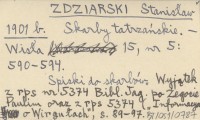 ZDZIARSKI Stanisław
1901 b. Skarby tatrzańskie. –
Wisła 15, nr 5:
590-594.
Spiski do skarbów. Wyjątek
z rps nr 5374 Bibl. Jag. po Żegocie
Paulim oraz z rps 5374 I. Informacja
o Wirgułach, s. 89-97.